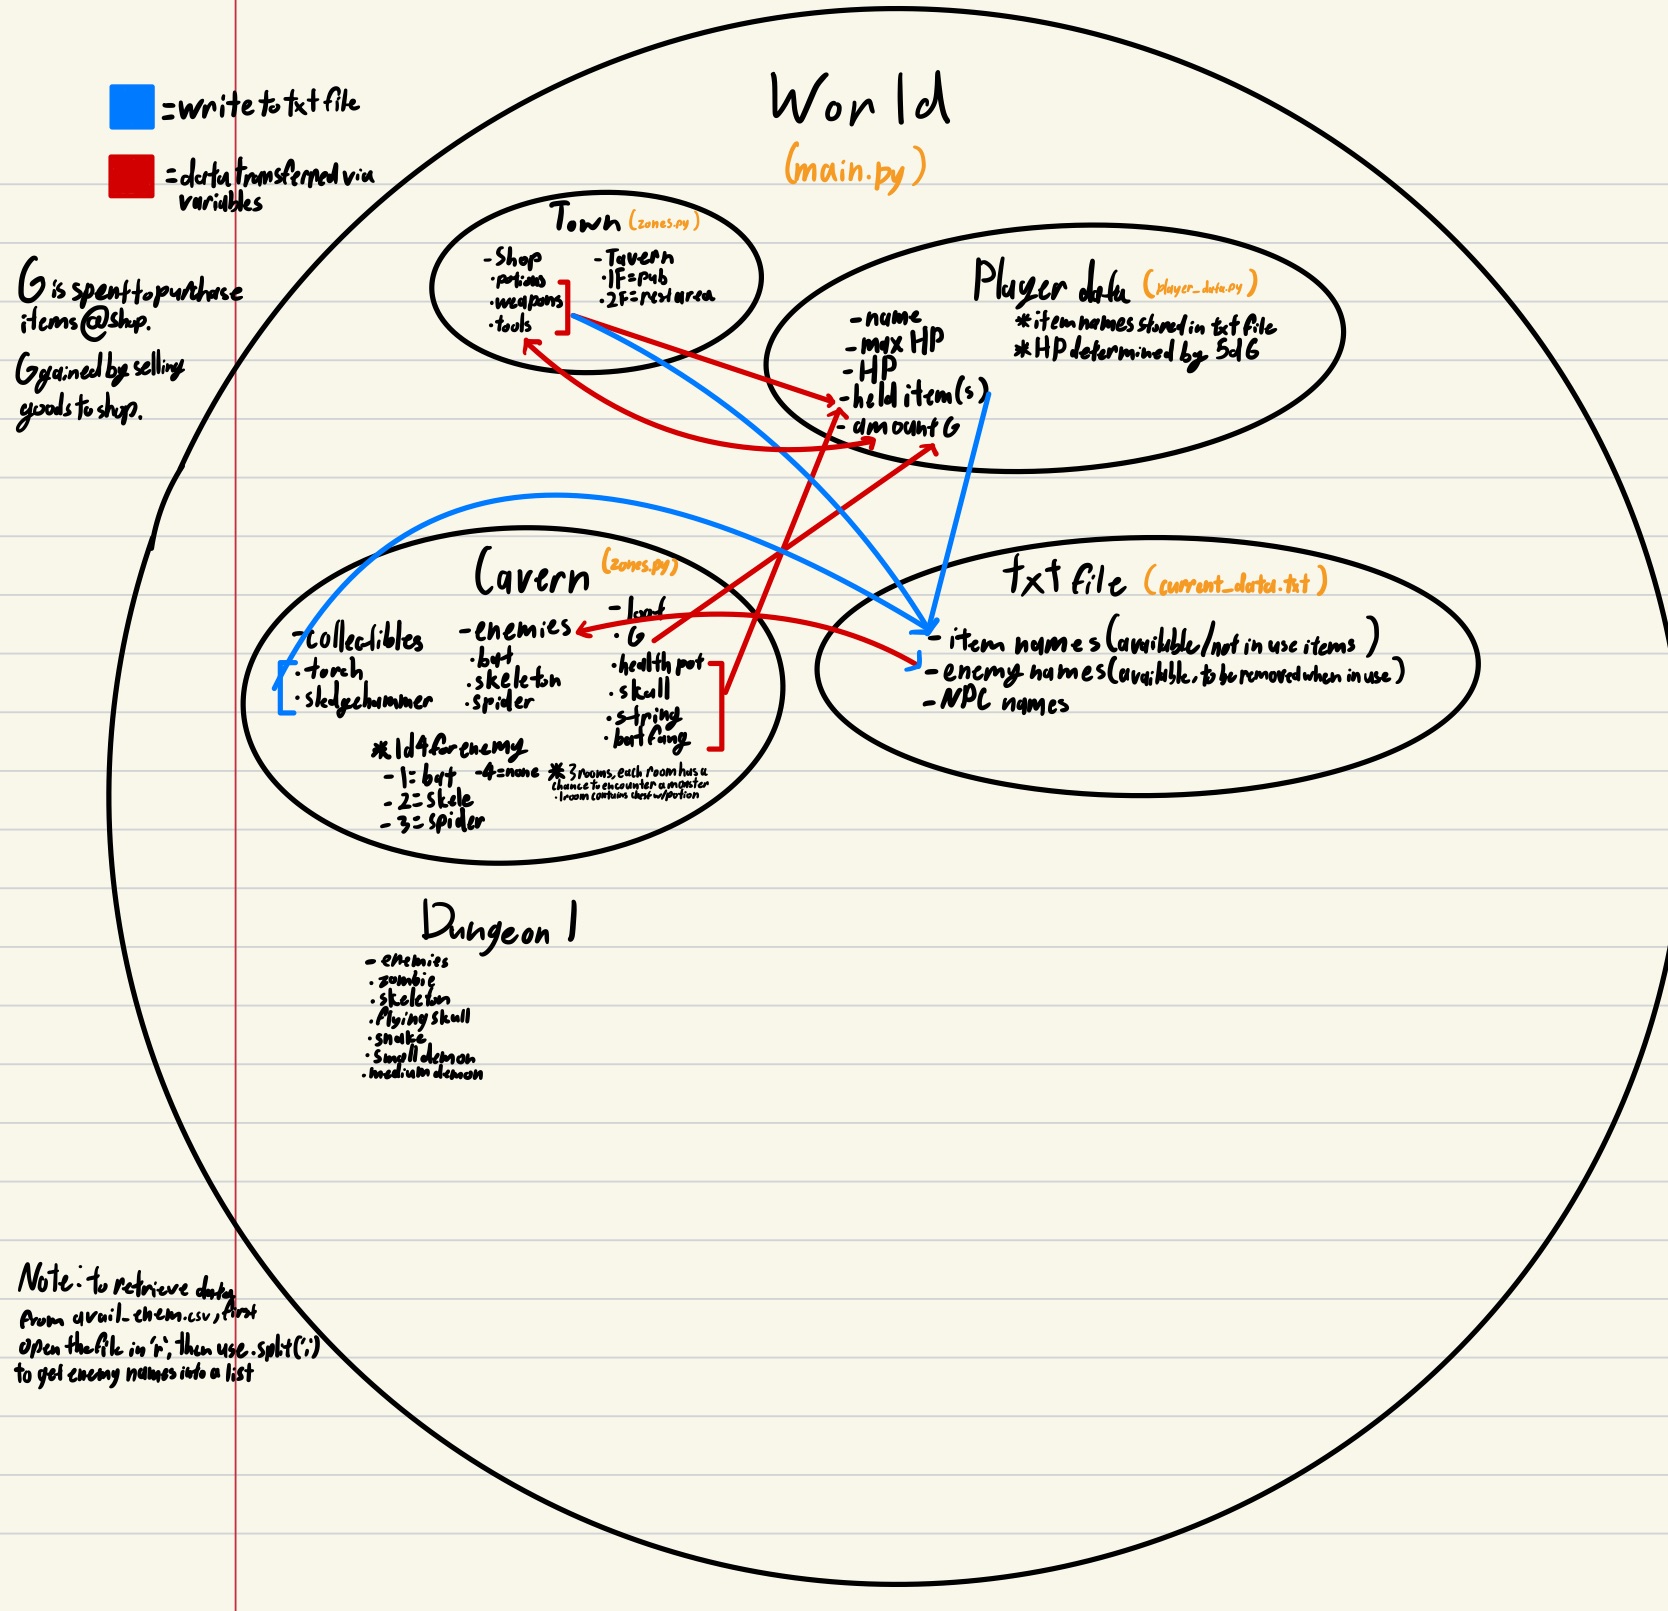 World
(main.py)
=write to txt file
=data transferred via
variables
G is spent to purchase
items @ shop.
G gained by selling
goods to shop.
Town (zones.py)
-Shop
·potions
·weapons
·tools
-Tavern
·1F=pub
·2F=rest area
Player data (player_data.py)
-name
-max HP
-HP
-held item(s)
-amount G
*item names stored in txt file
*HP determined by 5d6
Cavern (zones.py)
-collectibles
·torch
·sledgehammer
-enemies
·bat
·skeleton
·spider
-loot
·G
·health pot
·skull
·string
·bat fang
*1d4 for enemy
-1=bat -4=none
-2=skele
-3=spider
*3 rooms, each room has a
chance to encounter a monster
·1 room contains chest w/potion
txt file (current_data.txt)
-item names (available/not in use items)
-enemy names (available, to be removed when in use)
-NPC names
Dungeon 1
-enemies
·zombie
·skeleton
·flying skull
·snake
·small demon
·medium demon
Note: to retrieve data
from avail_enem.csv, first
open the file in 'r', then use .split(';')
to get enemy names into a list